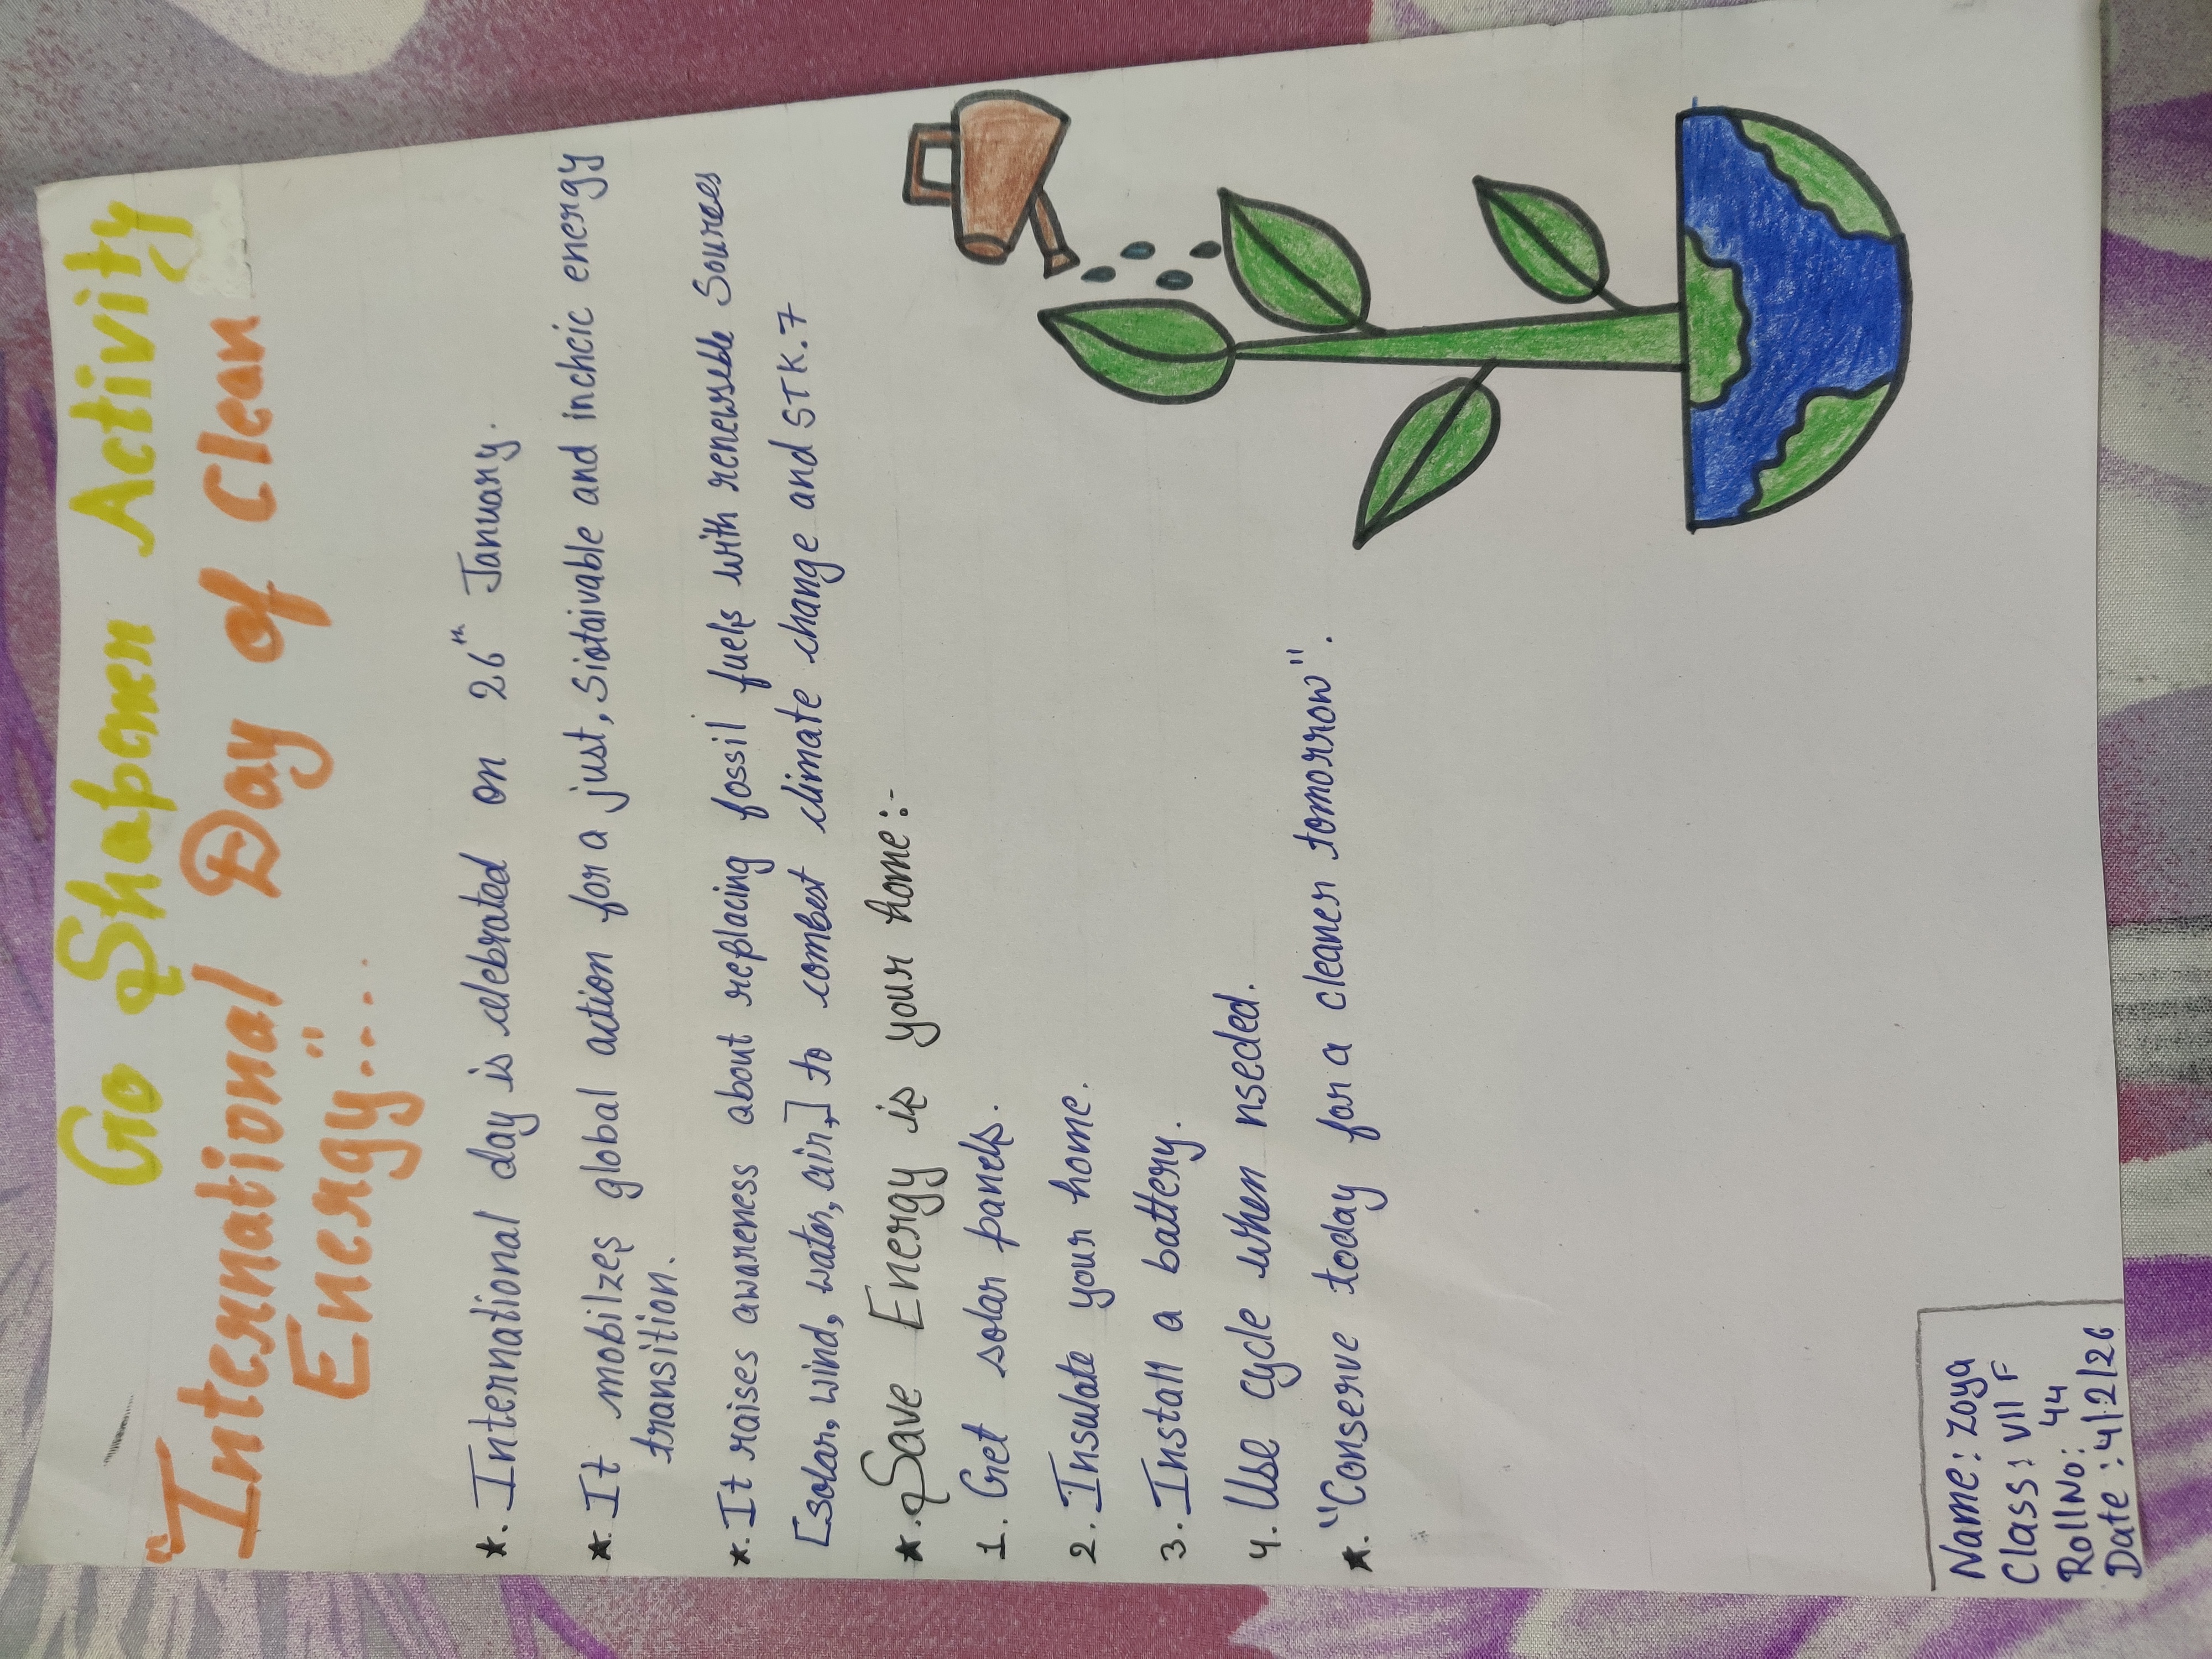 Go Shapener Activity
"International Day of Clean
Energy"....
*. International day is celebrated on 26th January.
*. It mobilzes global action for a just, Siotaivable and inchcic energy
transition.
*. It raises awareness about replacing fossil fuels with renewseble Sources
[solar, wind, water, air,] to combest climate change and STK.7
*. Save Energy is your home:-
1. Get solar panels.
2. Insulate your home.
3. Install a battery.
4. Use cycle when nseded.
*. "Conserve today for a cleaner tomorrow".
Name: Zoya
Class: VII F
Roll No: 44
Date: 4/2/26